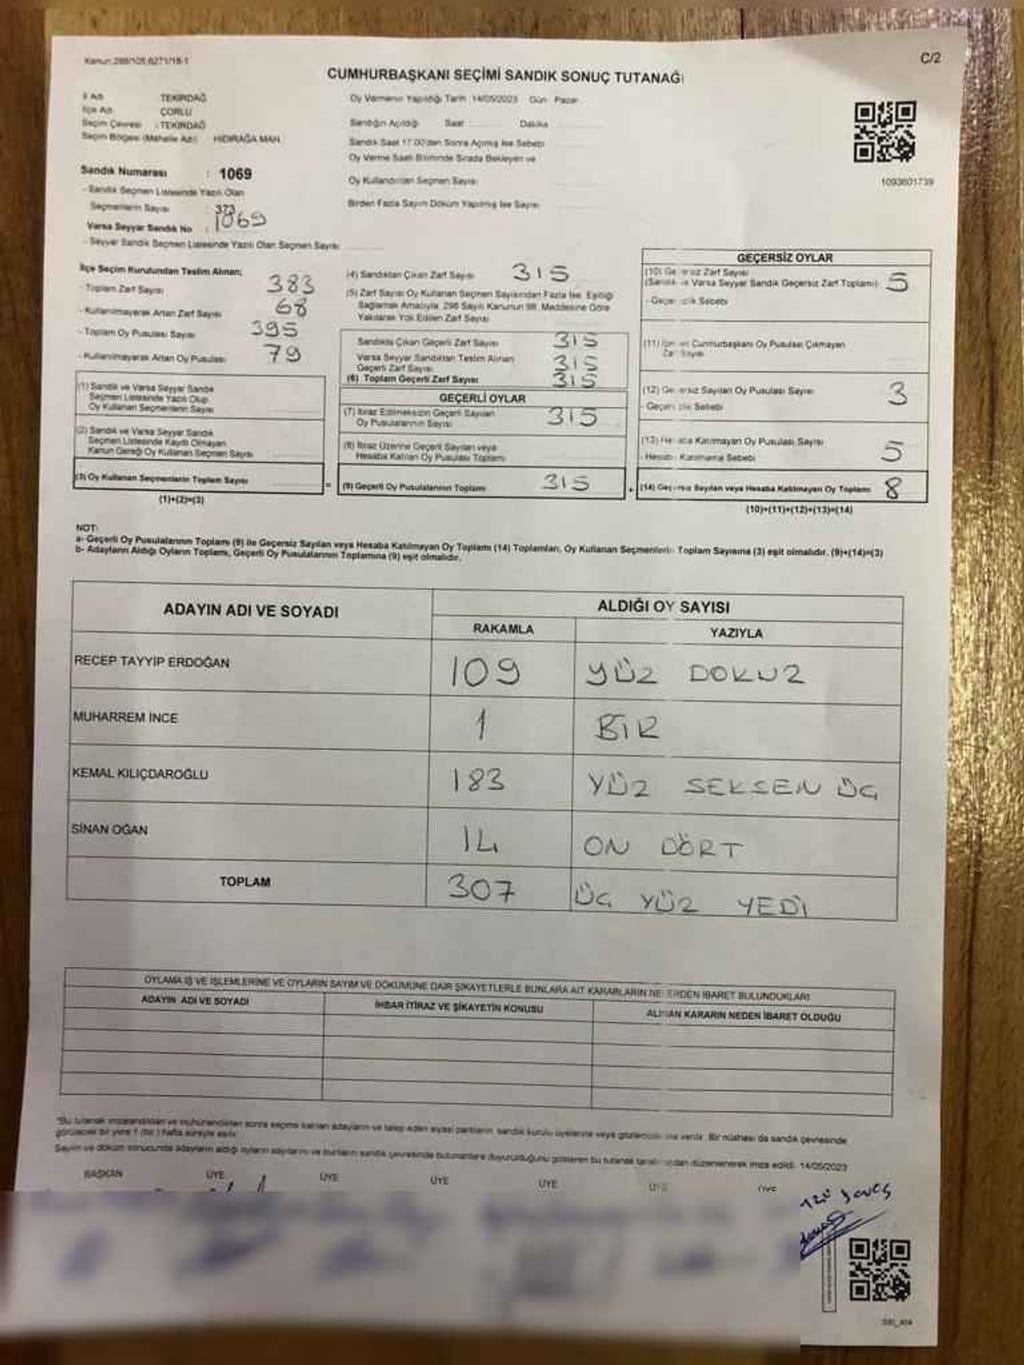 Kanun:298/105,6271/18-1
C/2
CUMHURBAŞKANI SEÇİMİ SANDIK SONUÇ TUTANAĞI
İl Adı TEKİRDAĞ
İlçe Adı ÇORLU
Seçim Çevresi : TEKİRDAĞ
Seçim Bölgesi (Mahalle Adı) HIDIRAĞA MAH
Oy Vermenin Yapıldığı Tarih :14/05/2023 Gün : Pazar
Sandığın Açıldığı Saat Dakika
Sandık Saat 17.00'den Sonra Açılmış İse Sebebi
Oy Verme Saati Bitiminde Sırada Bekleyen ve
Oy Kullandırılan Seçmen Sayısı
Birden Fazla Sayım Döküm Yapılmış İse Sayısı
1093601739
Sandık Numarası : 1069
- Sandık Seçmen Listesinde Yazılı Olan
Seçmenlerin Sayısı : 373
Varsa Seyyar Sandık No : 1069
- Seyyar Sandık Seçmen Listesinde Yazılı Olan Seçmen Sayısı
İlçe Seçim Kurulundan Teslim Alınan;
- Toplam Zarf Sayısı 383
- Kullanılmayarak Artan Zarf Sayısı 68
- Toplam Oy Pusulası Sayısı 395
- Kullanılmayarak Artan Oy Pusulası 79
(1) Sandık ve Varsa Seyyar Sandık
Seçmen Listesinde Yazılı Olup
Oy Kullanan Seçmenlerin Sayısı
(2) Sandık ve Varsa Seyyar Sandık
Seçmen Listesinde Kayıtlı Olmayan
Kanun Gereği Oy Kullanan Seçmen Sayısı
(3) Oy Kullanan Seçmenlerin Toplam Sayısı
(1)+(2)=(3)
=
(4) Sandıktan Çıkan Zarf Sayısı 315
(5) Zarf Sayısı Oy Kullanan Seçmen Sayısından Fazla İse, Eşitliği
Sağlamak Amacıyla, 298 Sayılı Kanunun 98. Maddesine Göre
Yakılarak Yok Edilen Zarf Sayısı
Sandıkta Çıkan Geçerli Zarf Sayısı 315
Varsa Seyyar Sandıktan Teslim Alınan
Geçerli Zarf Sayısı 315
(6) Toplam Geçerli Zarf Sayısı 315
GEÇERLİ OYLAR
(7) İtiraz Edilmeksizin Geçerli Sayılan
Oy Pusulalarının Sayısı 315
(8) İtiraz Üzerine Geçerli Sayılan veya
Hesaba Katılan Oy Pusulası Toplamı
(9) Geçerli Oy Pusulalarının Toplamı 315
+
GEÇERSİZ OYLAR
(10) Geçersiz Zarf Sayısı
(Sandık ve Varsa Seyyar Sandık Geçersiz Zarf Toplamı) 5
- Geçersizlik Sebebi
(11) Cumhurbaşkanı Oy Pusulası Çıkmayan
Zarf Sayısı
(12) Geçersiz Sayılan Oy Pusulası Sayısı 3
- Geçersizlik Sebebi
(13) Hesaba Katılmayan Oy Pusulası Sayısı 5
- Hesaba Katılmama Sebebi
(14) Geçersiz Sayılan veya Hesaba Katılmayan Oy Toplamı 8
(10)+(11)+(12)+(13)=(14)
NOT:
a- Geçerli Oy Pusulalarının Toplamı (9) ile Geçersiz Sayılan veya Hesaba Katılmayan Oy Toplamı (14) Toplamları, Oy Kullanan Seçmenlerin Toplam Sayısına (3) eşit olmalıdır. (9)+(14)=(3)
b- Adayların Aldığı Oyların Toplamı, Geçerli Oy Pusulalarının Toplamına (9) eşit olmalıdır.
ADAYIN ADI VE SOYADI
ALDIĞI OY SAYISI
RAKAMLA YAZIYLA
RECEP TAYYİP ERDOĞAN 109 YÜZ DOKUZ
MUHARREM İNCE 1 BİR
KEMAL KILIÇDAROĞLU 183 YÜZ SEKSEN ÜÇ
SİNAN OĞAN 14 ON DÖRT
TOPLAM 307 ÜÇ YÜZ YEDİ
OYLAMA İŞ VE İŞLEMLERİNE VE OYLARIN SAYIM VE DÖKÜMÜNE DAİR ŞİKAYETLERLE BUNLARA AİT KARARLARIN NELERDEN İBARET BULUNDUKLARI
ADAYIN ADI VE SOYADI İHBAR İTİRAZ VE ŞİKAYETİN KONUSU ALINAN KARARIN NEDEN İBARET OLDUĞU
"Bu tutanak imzalandıktan ve mühürlendikten sonra seçime katılan adayların ve talep eden siyasi partilerin, sandık kurulu üyelerine veya gözlemcilerine verilir. Bir nüshası da sandık çevresinde
görülecek bir yere 1 (bir) hafta süreyle asılır.
Sayım ve döküm sonucunda adayların aldığı oyların sayılarını ve bunların sandık çevresinde bulunanlara duyurulduğunu gösteren bu tutanak tarafımızdan düzenlenerek imza edildi. 14/05/2023
BAŞKAN ÜYE ÜYE ÜYE ÜYE ÜYE ÜYE